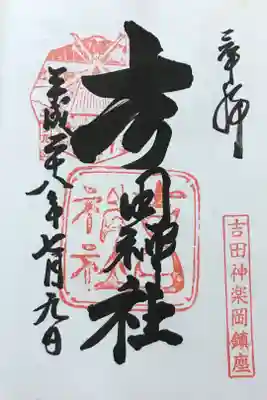 奉拝
吉田神社
平成二十八年七月九日
吉田神楽岡鎮座